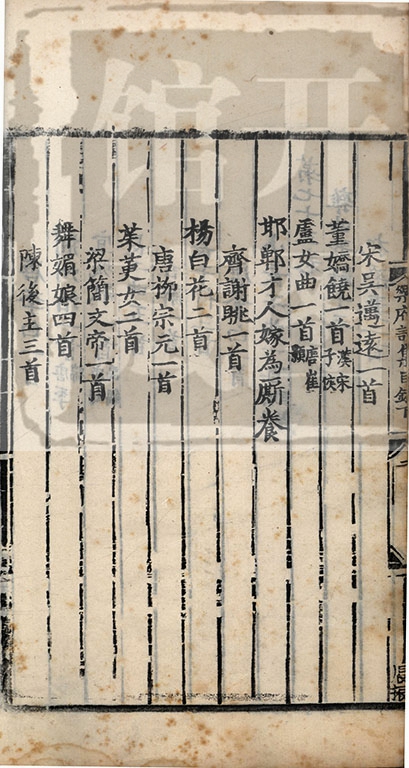 宋吳邁遠一首
董嬌饒一首 漢宋子侯
盧女曲一首 唐崔顥
邯鄲才人嫁為厮養
齊謝朓一首
楊白花二首
唐柳宗元一首
茱萸女二首
梁簡文帝一首
舞媚娘四首
陳後主三首